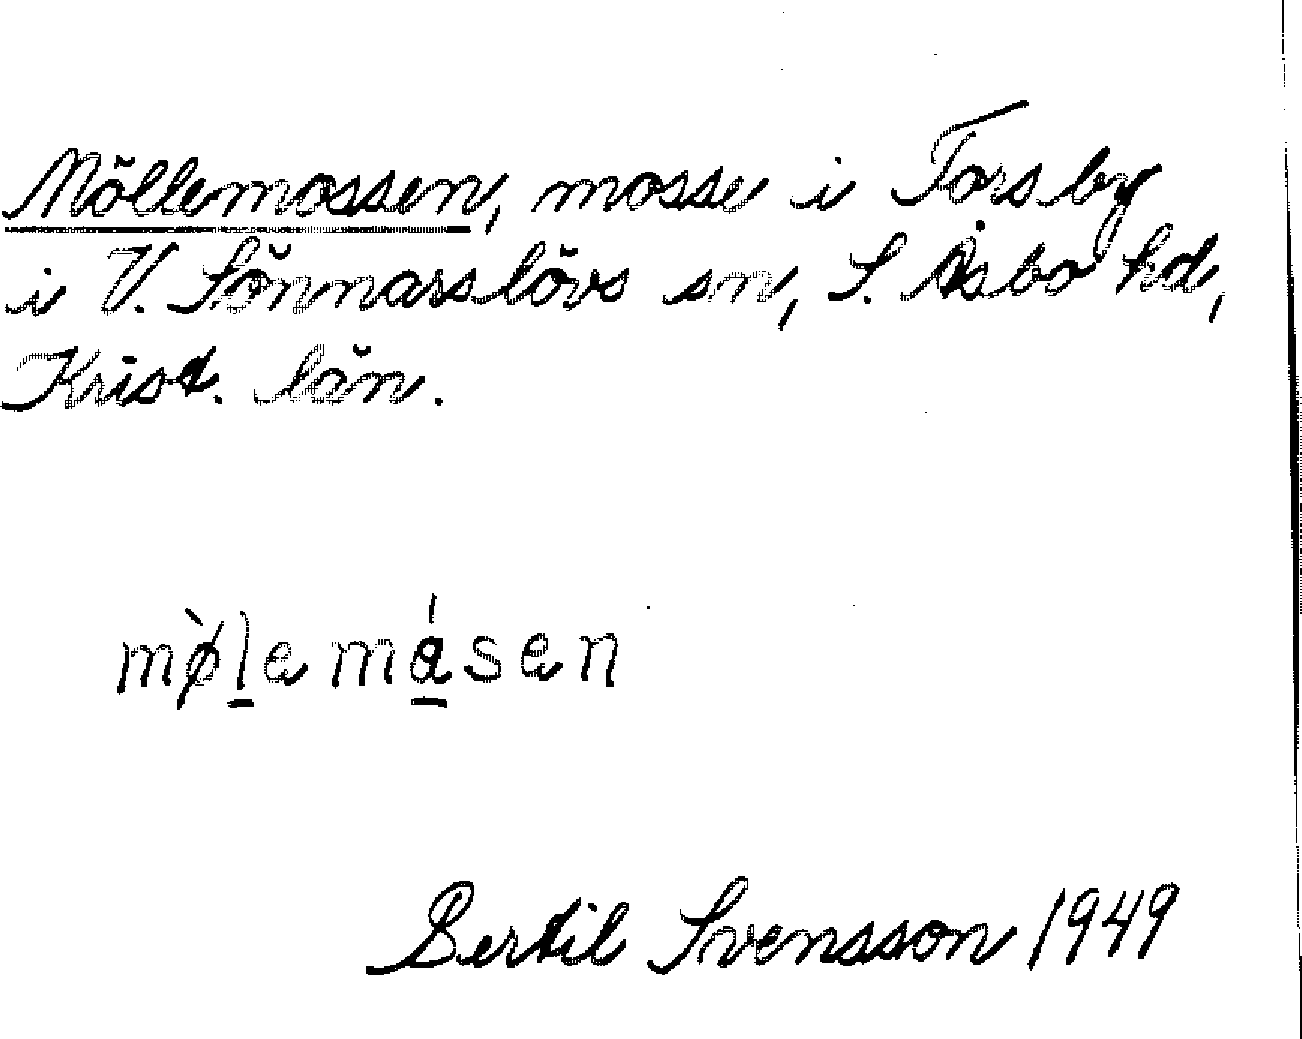 Möllemossen, mosse i Forsby
i V. Sönnarslövs sn, S. Åsbo hd,
Krist. län.
mø̀l̠e má̠sen
Bertil Svensson 1949